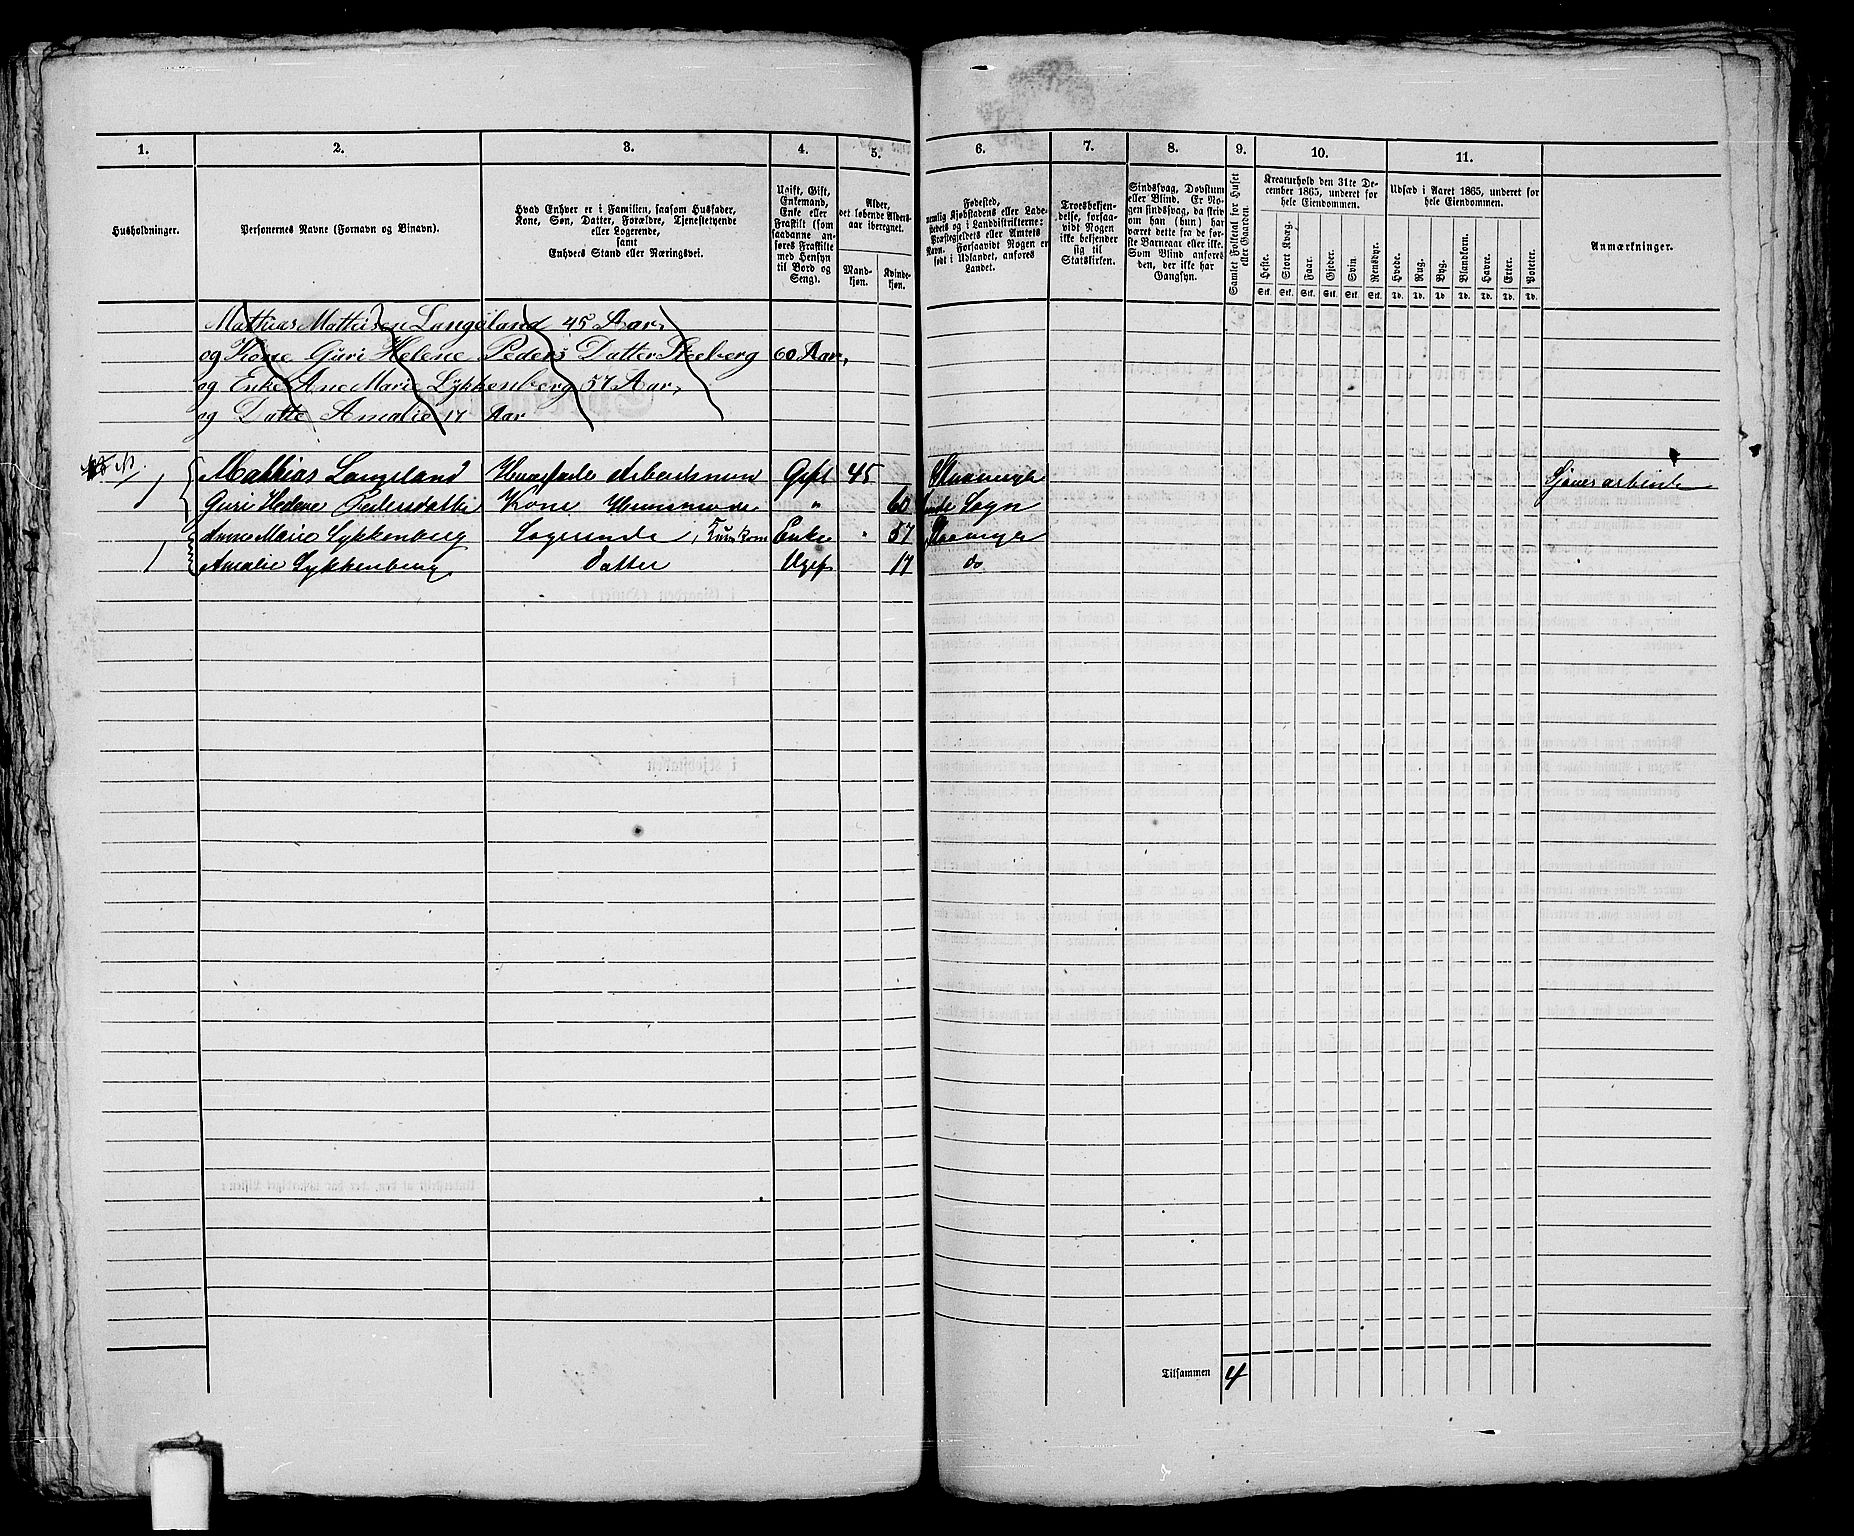 1.
2.
3.
4.
5.
6.
7.
8.
9.
10.
11.
Husholdninger.
Personernes Navne (Fornavn og Binavn).
Hvad Enhver er i Familien, saasom Husfader,
Kone, Søn, Datter, Forældre, Tjenestetyende
eller Logerende,
samt
Enhvers Stand eller Næringsvei.
Ugift, Gift,
Enkemand,
Enke eller
Fraskilt (som
saadanne an-
føres Fraskilte
med Hensyn
til Bord og
Seng).
Alder,
det løbende Alders-
aar iberegnet.
Mand-
kjøn.
Kvinde-
kjøn.
Fødested,
nemlig Kjøbstadens eller Lade-
stedets og i Landdistrikterne:
Præstegjeldets eller Amtets
Navn. Forsaavidt Nogen er
født i Udlandet, anføres
Landet.
Troesbekjen-
delse, forsaa-
vidt Nogen
ikke bekjender
sig til
Statskirken.
Sindssvag, Døvstum
eller Blind. Er No-
gen sindssvag, da skriv
om han (hun) har
været dette fra de før-
ste Barneaar eller ikke.
Som Blind anføres
den, der ikke har
Gangsyn.
Samlet Folketal for Huset
eller Gaarden.
Kreaturhold den 31te De-
cember 1865, underet for
hele Eiendommen.
Heste.
Stort Kvæg.
Faar.
Gjeder.
Svin.
Rensdyr.
Stk. Stk. Stk. Stk. Stk. Stk.
Udsæd i Aaret 1865, underet for
hele Eiendommen.
Hvede.
Rug.
Byg.
Blandkorn.
Havre.
Erter.
Poteter.
Td. Td. Td. Td. Td. Td. Td.
Anmærkninger.
Mathias Mathisen Langeland 45 Aar,
og Kone Guri Helene Peders Datter 60 Aar,
og Enke Ane Marie Lykkenberg 57 Aar,
og Datte Amalie 17 Aar
1 Mathias Langeland Arbeidsmand Gift 45 Stavanger
Guri Helene Pedersdatter Kone " 60 Sogn
Anne Marie Lykkenberg Logerende, Enke " 57 Stavanger
1 Amalie Lykkenberg Datter Ugift 17 do
Tilsammen 4